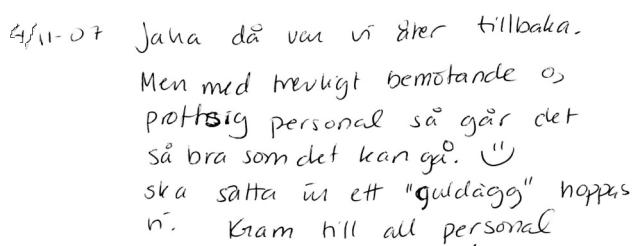 4/11-07 Jaha då var vi åter tillbaka.
Men med trevligt bemötande o
prottsig personal så går det
så bra som det kan gå. Ü
ska sätta in ett "guldägg" hoppas
vi. Kram till all personal